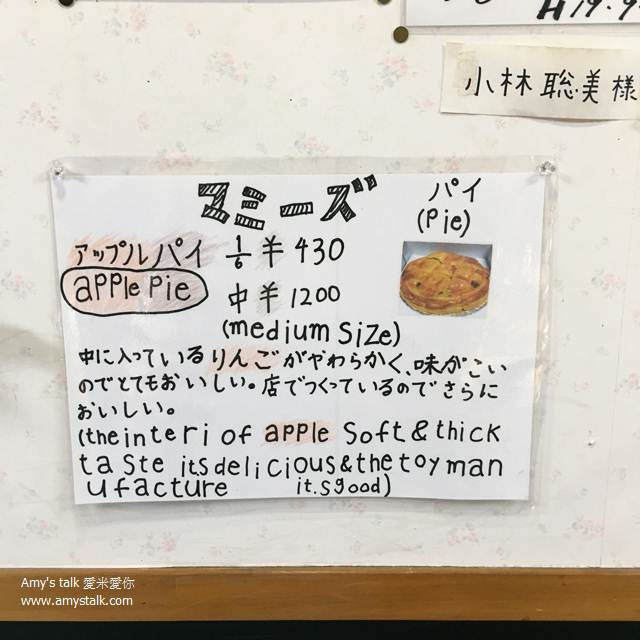 H19.9
小林聡美様
マミーズ
パイ
(Pie)
アップルパイ 1/6 ¥430
apple Pie
中 ¥1200
(medium Size)
中に入っているりんごがやわらかく、味がこい
のでとてもおいしい。店でつくっているのでさらに
おいしい。
(the interi of apple Soft & thick
taste its delicious & the toy man
ufacture it.sgood)
Amy's talk 愛米愛你
www.amystalk.com